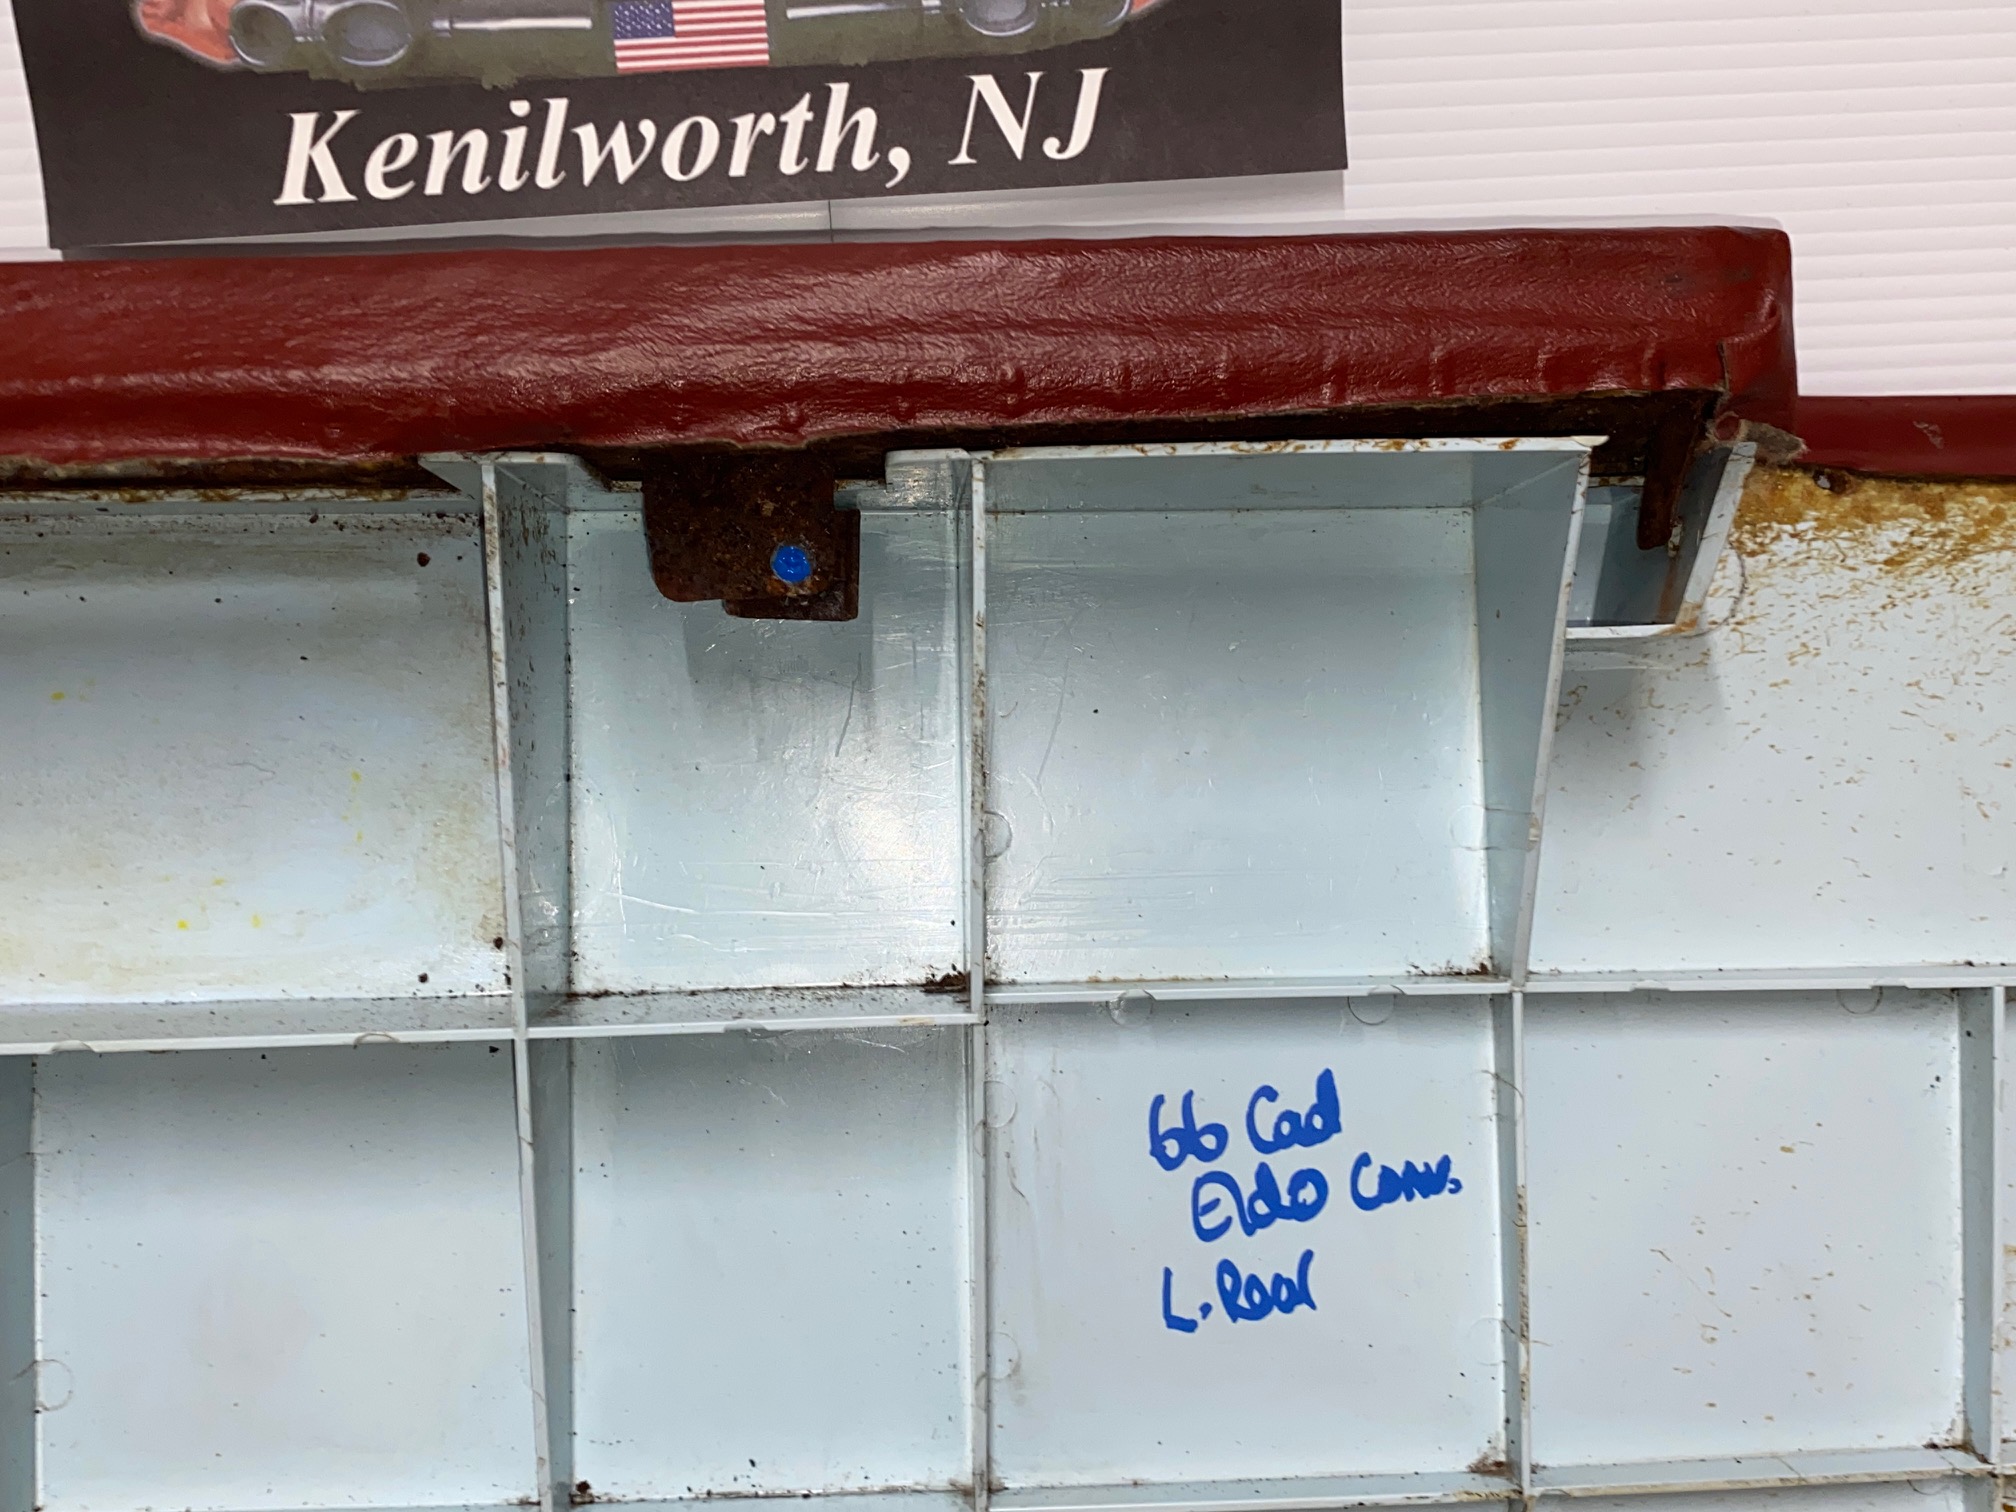 Kenilworth, NJ
66 Cad
Eldo Conv.
L. Rear